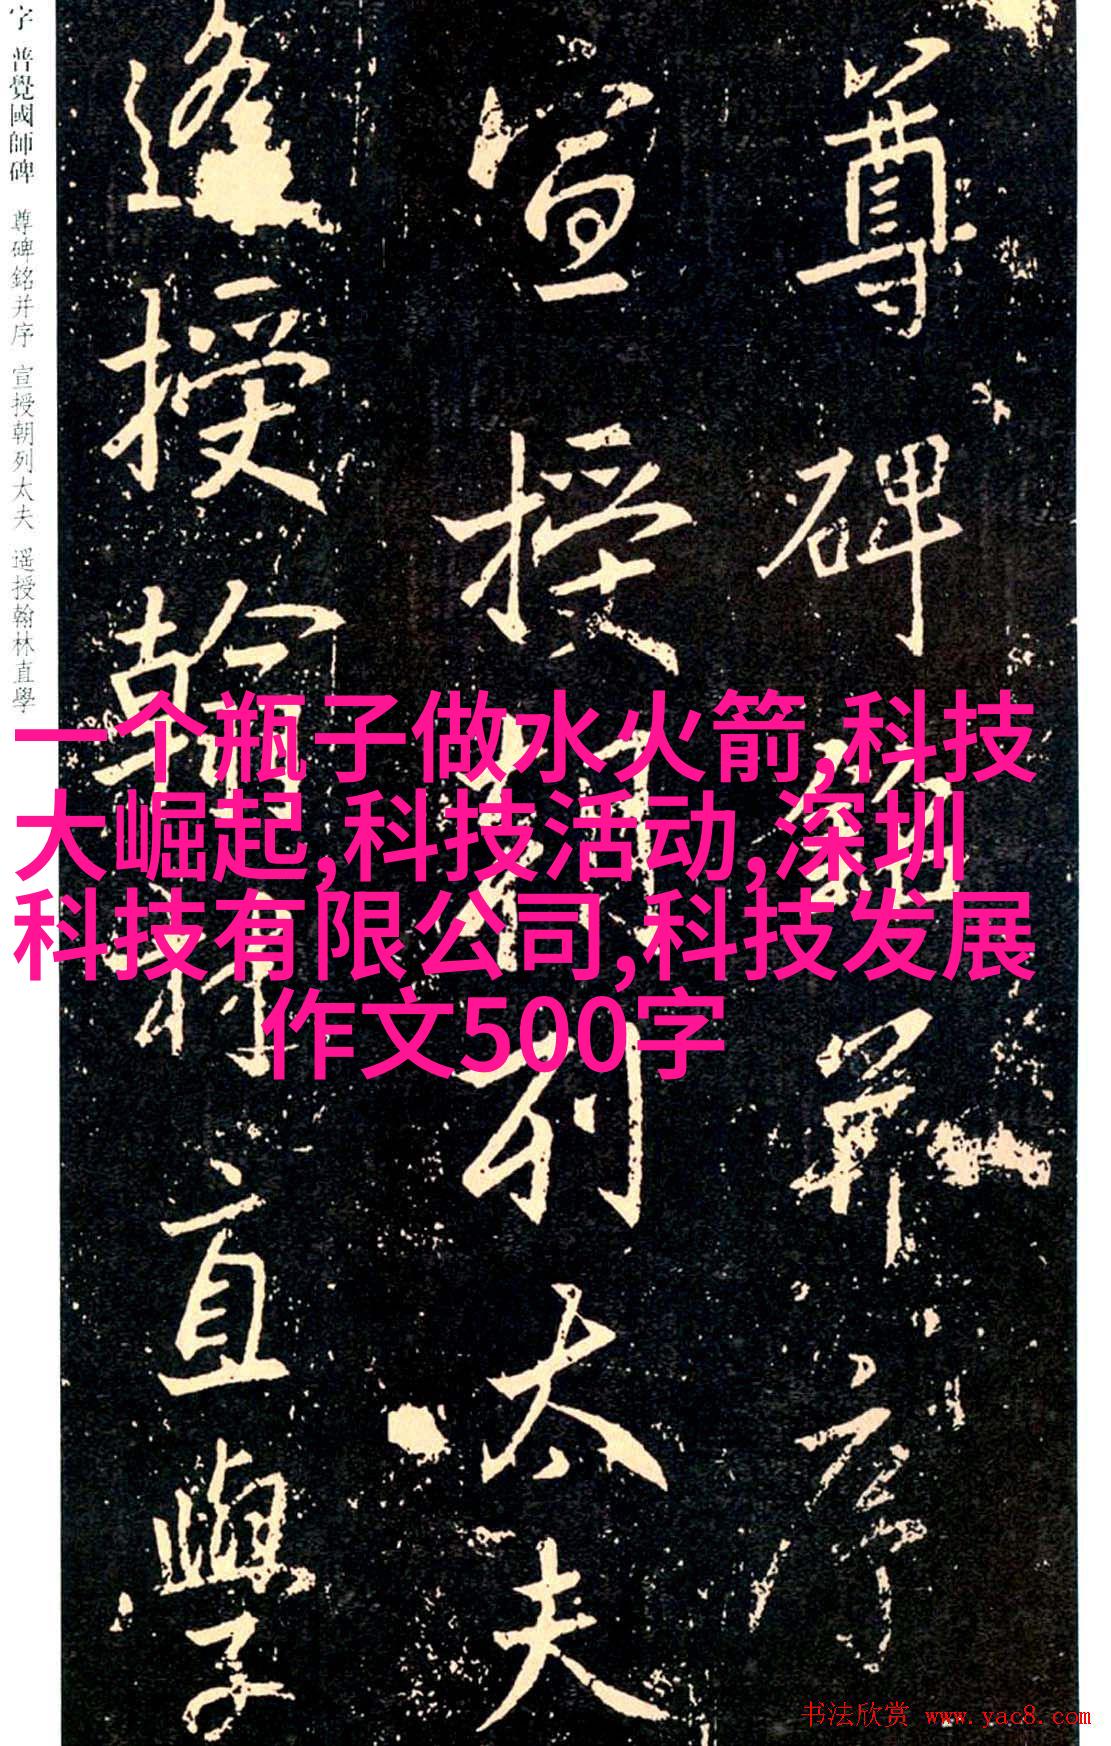 字 普覺國師碑 尊碑銘并序 宣授朝列太夫 遥授翰林直學
尊碑銘并序
宣授朝列太夫
遙授翰林直學
一个瓶子做水火箭,科技
大崛起,科技活动,深圳
科技有限公司,科技发展
作文500字
书法欣赏 www.yac8.com